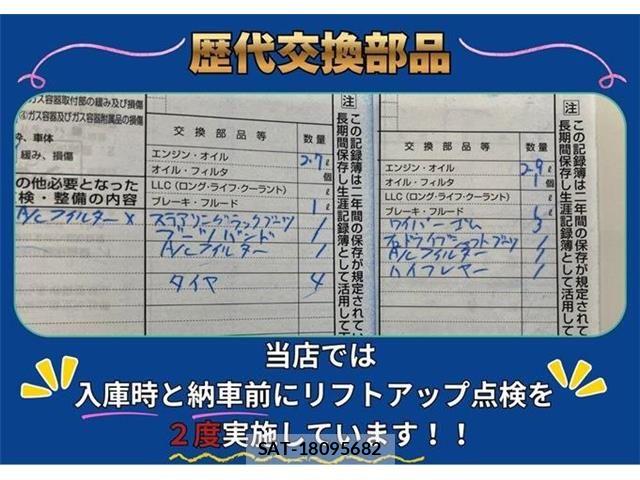 歴代交換部品
ガス容器取付部の緩み及び損傷
④ガス容器及びガス容器附属品の損傷
枠、車体
緩み、損傷
の他必要となった
検・整備の内容
A/Cフィルター ×
交換部品等 数量
エンジン・オイル 2.7 ℓ
オイル・フィルタ 個
LLC(ロング・ライフ・クーラント) ℓ
ブレーキ・フルード 1 ℓ
ステアリングラックブーツ 1
ブーツバンド 1
A/Cフィルター 1
タイヤ 4
注
この記録簿は二年間の保存が規定されて
長期間保存し生涯記録簿として活用して
交換部品等 数量
エンジン・オイル 2.9 ℓ
オイル・フィルタ 1 個
LLC(ロング・ライフ・クーラント) ℓ
ブレーキ・フルード ℓ
ワイパーゴム 3
ドライブシャフトブーツ 1
A/Cフィルター 1
ハイフレヤー 1
注
この記録簿は二年間の保存が規定されて
長期間保存し生涯記録簿として活用して
当店では
入庫時と納車前にリフトアップ点検を
2度実施しています!!
SAT-18095682